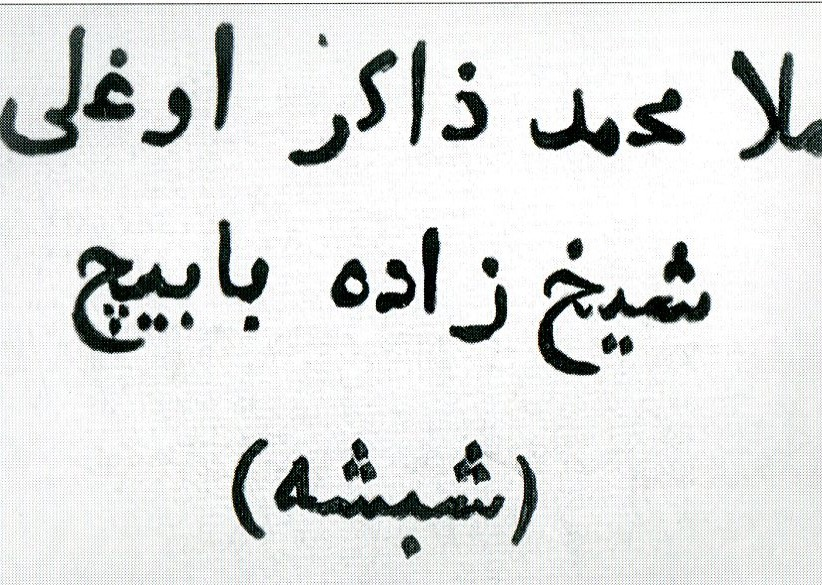 ملا محمد ذاكر اوغلى
شيخ زاده بابيچ
(شبشه)